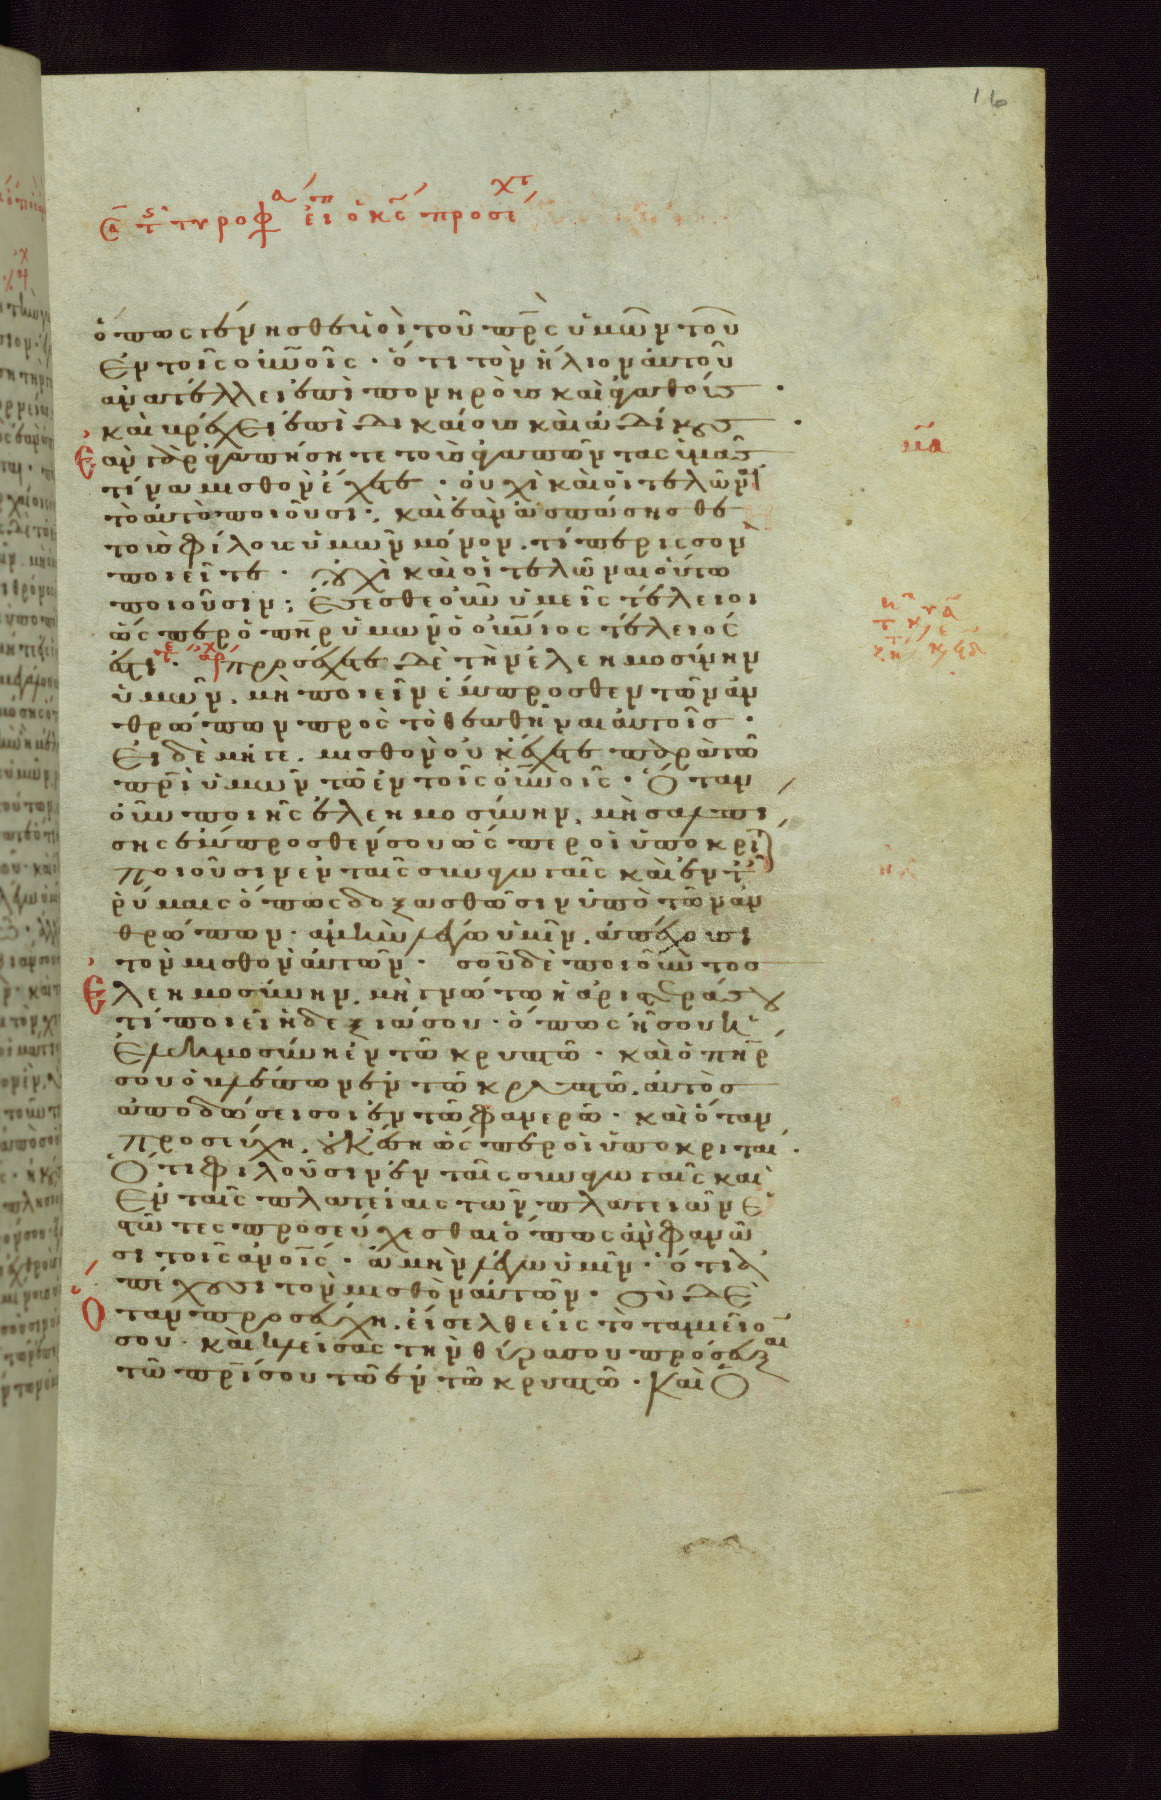 16
ὅπως γένησθε υἱοὶ τοῦ πρς ὑμῶν τοῦ
ἐν τοῖς οὐνοῖς · ὅτι τὸν ἥλιον αὐτοῦ
ἀνατέλλει ἐπὶ πονηροὺς καὶ ἀγαθοὺς ·
καὶ βρέχει ἐπὶ δικαίους καὶ ἀδίκους ·
Ἐὰν γὰρ ἀγαπήσητε τοὺς ἀγαπῶντας ὑμᾶς
τίνα μισθὸν ἔχετε · οὐχὶ καὶ οἱ τελῶναι
τὸ αὐτὸ ποιοῦσι; καὶ ἐὰν ἀσπάσησθε
τοὺς φίλους ὑμῶν μόνον. τί περισσὸν
ποιεῖτε · οὐχὶ καὶ οἱ τελῶναι οὕτω
ποιοῦσιν; Ἔσεσθε οὖν ὑμεῖς τέλειοι
ὥσπερ ὁ πηρ ὑμῶν ὁ οὐνιος τέλειός
ἐστι · προσέχετε δὲ τὴν ἐλεημοσύνην
ὑμῶν, μὴ ποιεῖν ἔμπροσθεν τῶν ἀν
θρώπων πρὸς τὸ θεαθῆναι αὐτοῖς ·
Εἰ δὲ μήγε. μισθὸν οὐκ ἔχετε παρὰ τῶ
πρι ὑμῶν τῶ ἐν τοῖς οὐνοῖς · Ὅταν
οὖν ποιῆς ἐλεημοσύνην, μὴ σαλπί
σης ἔμπροσθέν σου ὥσπερ οἱ ὑποκρι
ποιοῦσιν ἐν ταῖς συναγωγαῖς καὶ ἐν τ
ῥύμαις ὅπως δοξασθῶσιν ὑπὸ τῶν ἀν
θρώπων · ἀμὴν λέγω ὑμῖν. ἀπέχουσι
τὸν μισθὸν αὐτῶν · σοῦ δὲ ποιοῦντος
Ἐλεημοσύνην, μὴ γνώτω ἡ ἀριστερά σου
τί ποιεῖ ἡ δεξιά σου · ὅπως ἦ σου ἡ
Ἐλεημοσύνη ἐν τῶ κρυπτῶ · καὶ ὁ πηρ
σου ὁ βλέπων ἐν τῶ κρυπτῶ. αὐτὸς
ἀποδώσει σοι ἐν τῶ φανερῶ · καὶ ὅταν
προσεύχη, οὐκ ἔση ὥσπερ οἱ ὑποκριταί ·
Ὅτι φιλοῦσιν ἐν ταῖς συναγωγαῖς καὶ
Ἐν ταῖς πλατείαις τῶν πλατειῶν ἑ
στῶτες προσεύχεσθαι ὅπως ἂν φανῶ
σι τοῖς ἀνοις · ἀμὴν λέγω ὑμῖν · ὅτι ἀ
πέχουσι τὸν μισθὸν αὐτῶν · Σὺ δὲ
Ὅταν προσεύχη. εἴσελθε εἰς τὸ ταμεῖόν
σου · καὶ κλείσας τὴν θύραν σου πρόσευξαι
τῶ πρι σου τῶ ἐν τῶ κρυπτῶ · Καὶ ὁ